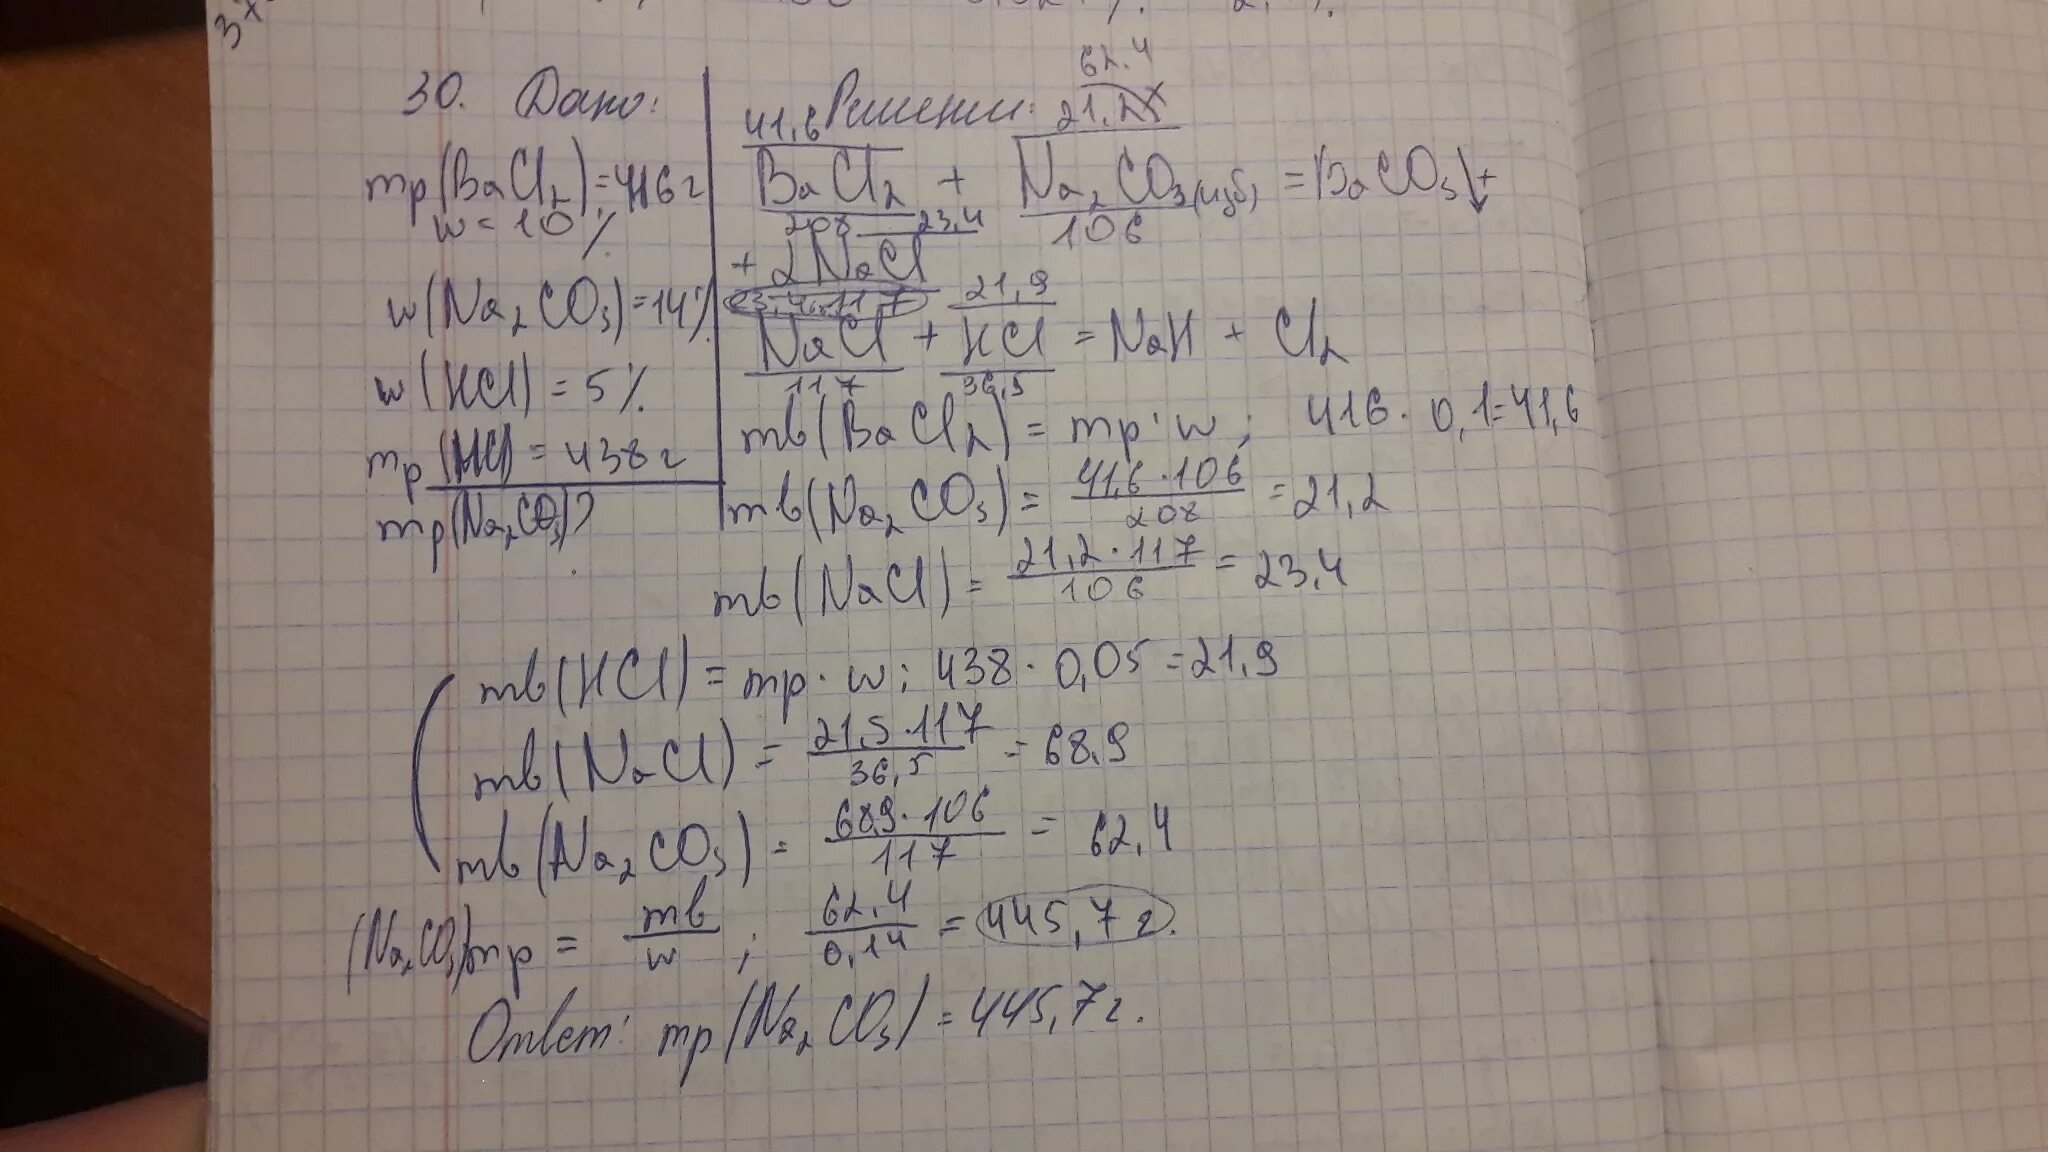 30. Дано:
mp(BaCl2)=416г
w=10%
w(Na2CO3)=14%
w(HCl)=5%
mp(HCl)=438г
mp(Na2CO3)?
Решении:
41,6 62.4
21,2
BaCl2 + Na2CO3(изб) = BaCO3↓+
208 23,4 106
+ 2NaCl
23,4 117 21,9
NaCl + HCl = NaH + Cl2
117 36,5
mв(BaCl2)= mp·w; 416·0,1=41,6
mв(Na2CO3)= 41,6·106/208 =21,2
mв(NaCl)= 21,2·117/106 = 23,4
mв(HCl)=mp·w; 438·0,05=21,9
mв(NaCl)= 21,5·117/36,5 =68,9
mв(Na2CO3)= 689·106/117 = 62,4
(Na2CO3)mp = mв/w ; 62,4/0,14 = 445,7г.
Ответ: mp(Na2CO3)=445,7г.